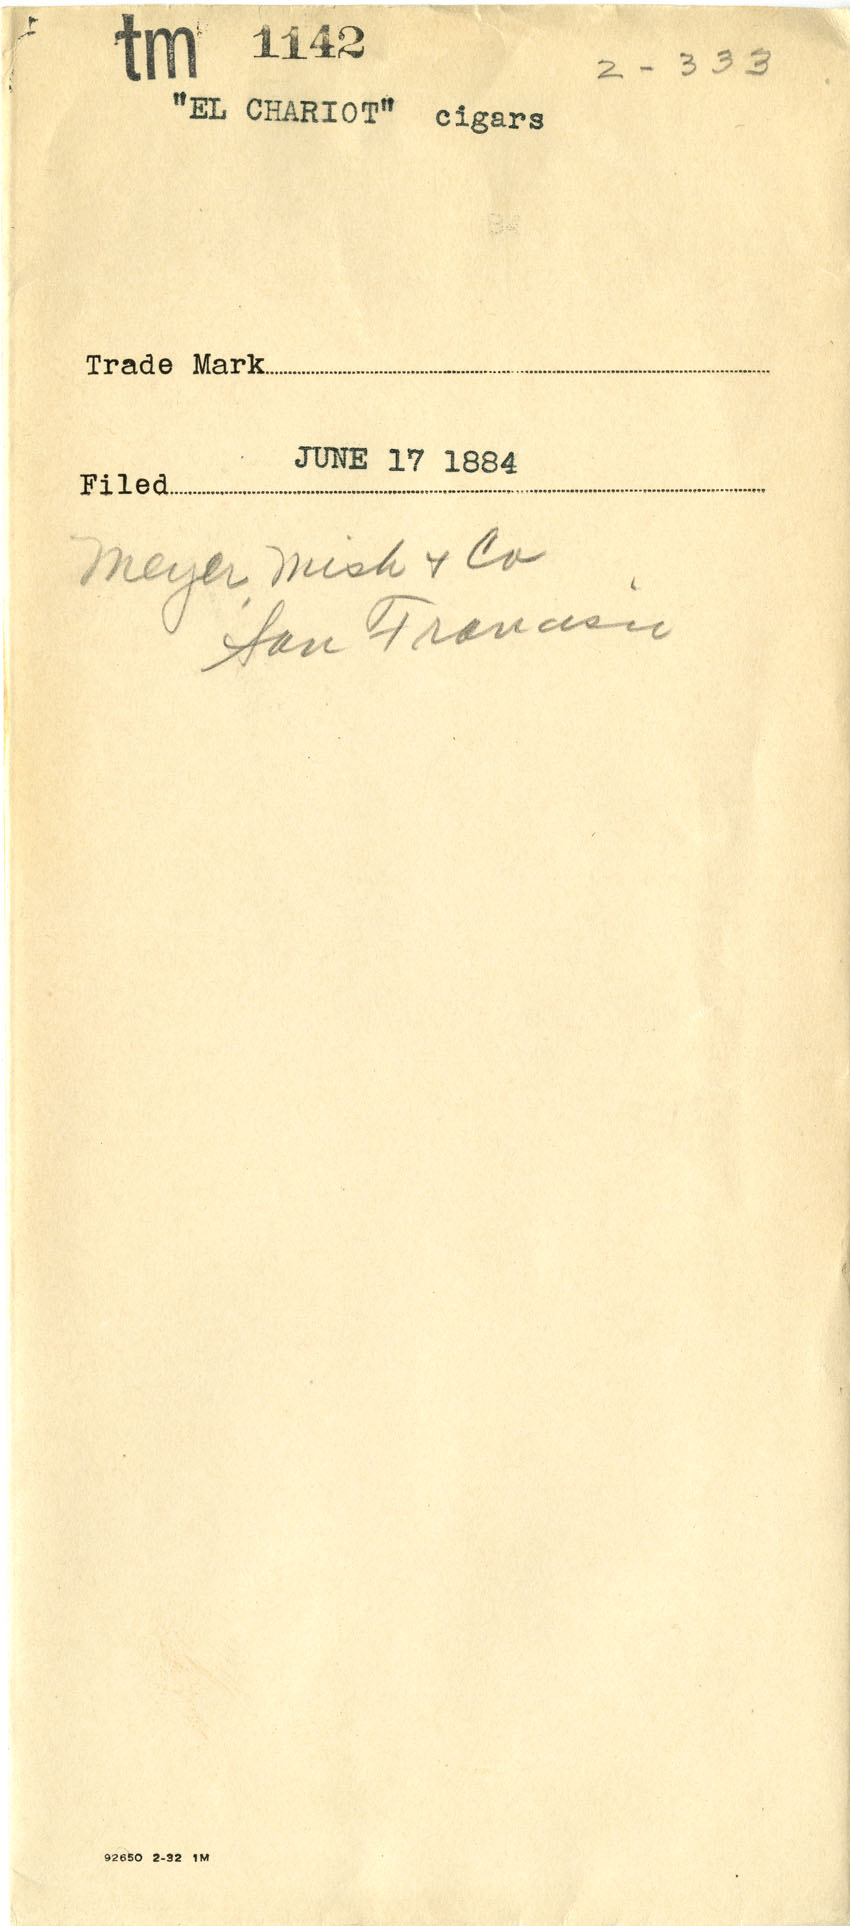 tm 1142 2-333
"EL CHARIOT" cigars
Trade Mark
JUNE 17 1884
Filed
Meyer, Mish & Co
San Francisco
92650 2-32 1M